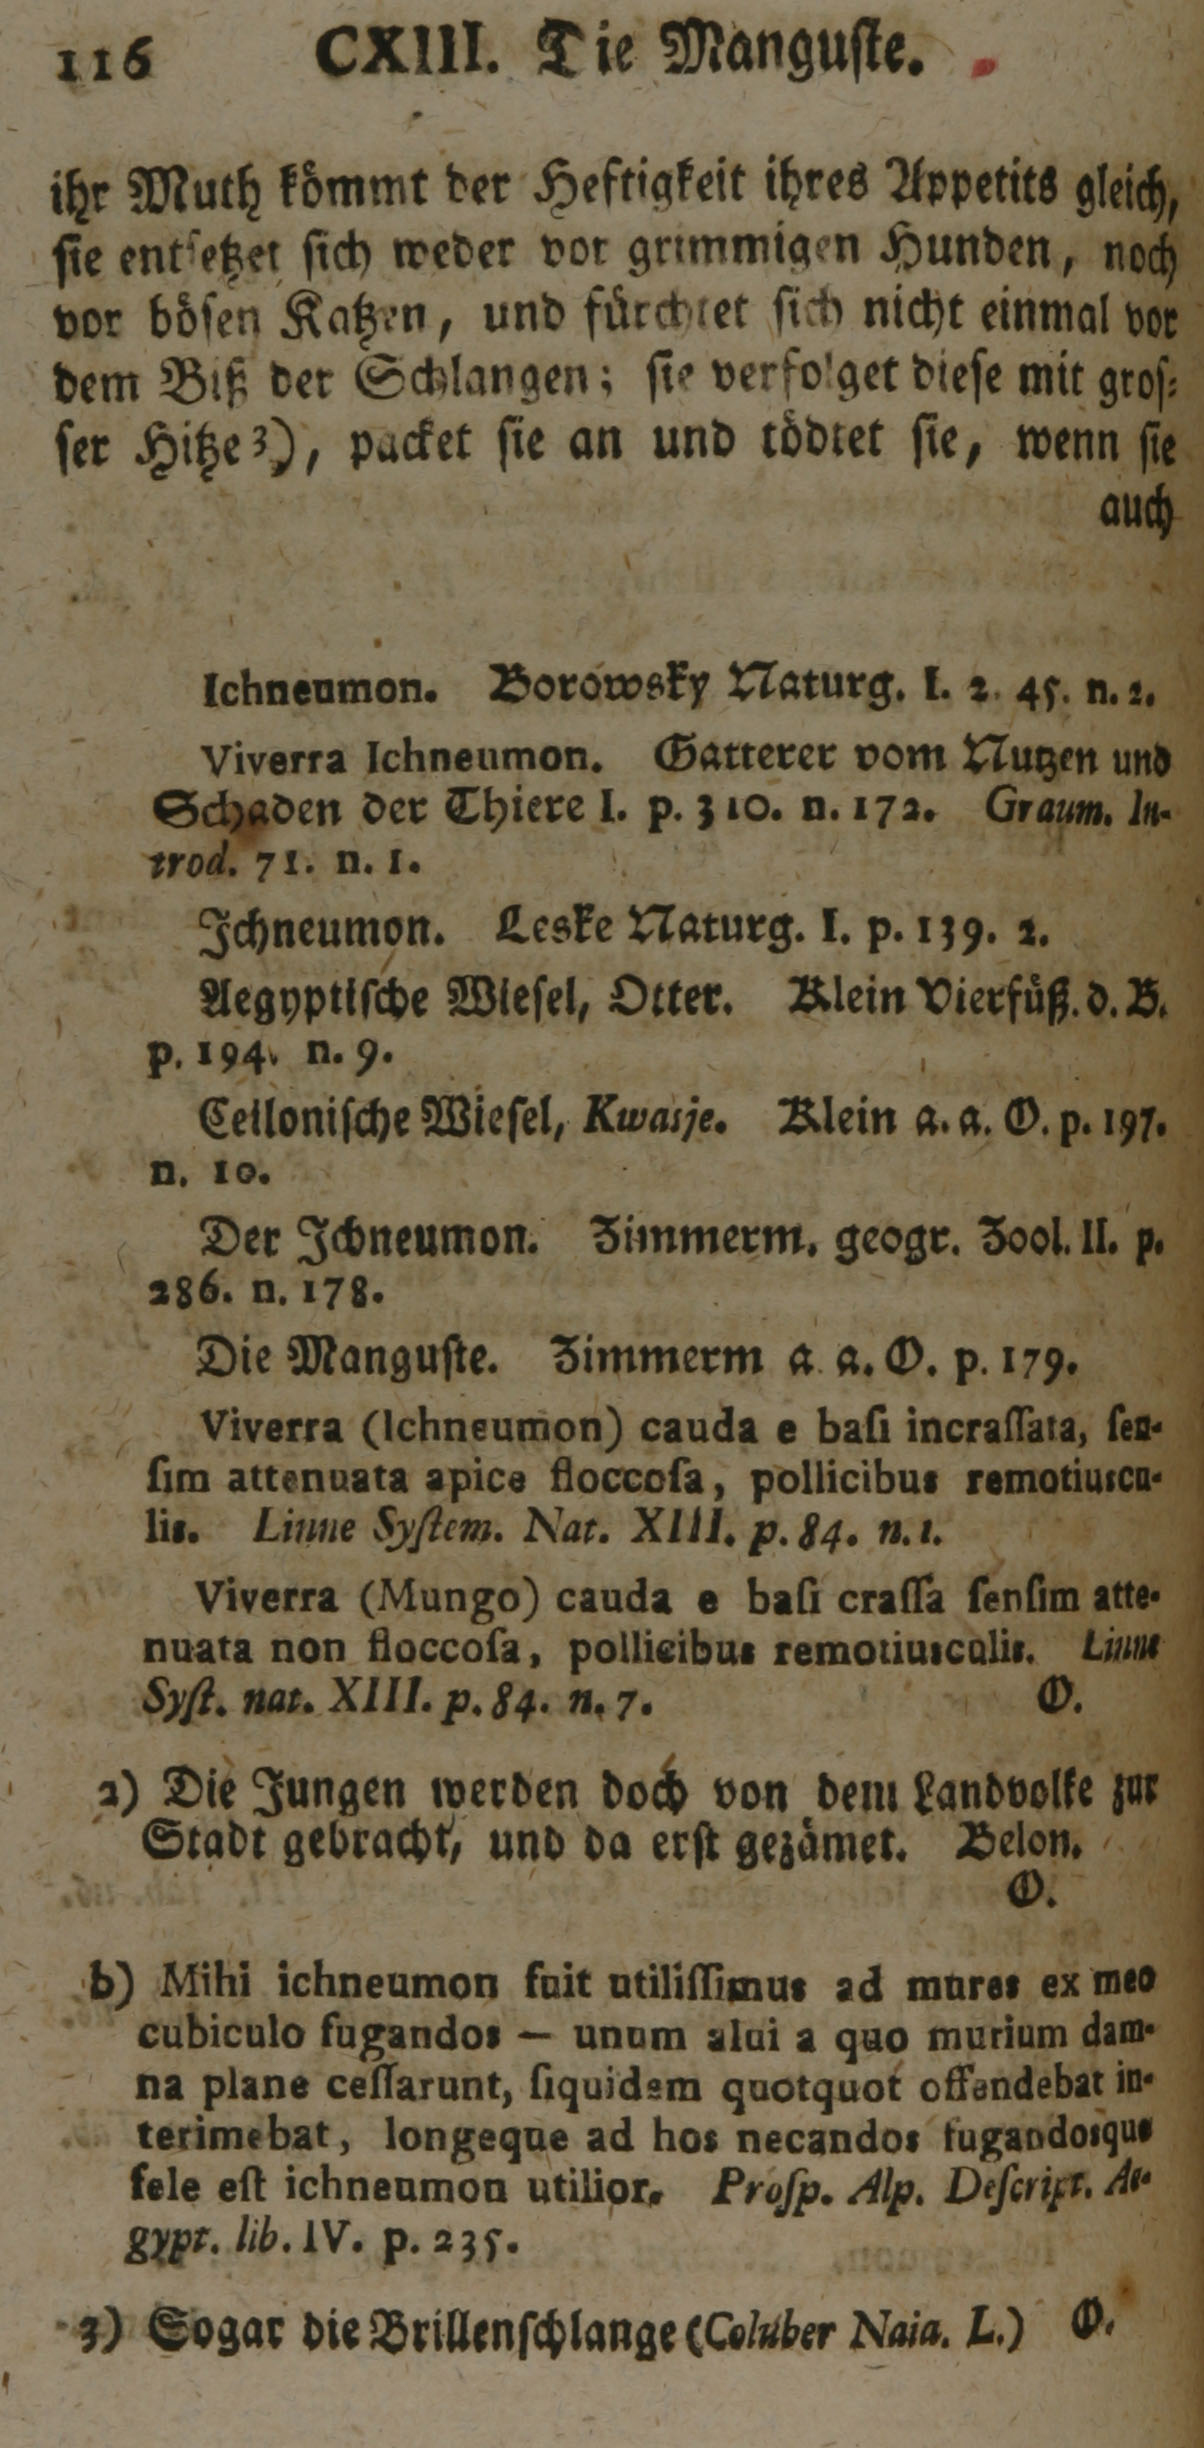 116 CXIII. Die Manguste.
ihr Muth kömmt der Heftigkeit ihres Appetits gleich,
sie entsetzet sich weder vor grimmigen Hunden, noch
vor bösen Katzen, und fürchtet sich nicht einmal vor
dem Biß der Schlangen; sie verfolget diese mit gros-
ser Hitze 3), packet sie an und tödtet sie, wenn sie
auch
Ichneumon. Borowsky Naturg. I. 2. 45. n. 2.
Viverra Ichneumon. Gatterer vom Nutzen und
Schaden der Thiere I. p. 310. n. 172. Graum. In-
trod. 71. n. 1.
Ichneumon. Leske Naturg. I. p. 139. 2.
Aegyptische Wiesel, Otter. Klein Vierfüß. d. B.
p. 194. n. 9.
Ceilonische Wiesel, Kwasje. Klein a. a. O. p. 197.
n. 10.
Der Ichneumon. Zimmerm. geogr. Zool. II. p.
286. n. 178.
Die Manguste. Zimmerm a. a. O. p. 179.
Viverra (Ichneumon) cauda e baſi incraſſata, ſen-
ſim attenuata apice floccoſa, pollicibus remotiuscu-
lis. Linne Syſtem. Nat. XIII. p. 84. n. 1.
Viverra (Mungo) cauda e baſi craſſa ſenſim atte-
nuata non floccoſa, pollicibus remotiusculis. Linne
Syſt. nat. XIII. p. 84. n. 7. O.
2) Die Jungen werden doch von dem Landvolke zur
Stadt gebracht, und da erst gezämet. Belon.
O.
b) Mihi ichneumon fuit utiliſſimus ad mures ex meo
cubiculo fugandos — unum alui a quo murium dam-
na plane ceſſarunt, ſiquidem quotquot offendebat in-
terimebat, longeque ad hos necandos fugandosque
fele eſt ichneumon utilior. Proſp. Alp. Deſcript. Ae-
gypt. lib. IV. p. 235.
3) Sogar die Brillenschlange (Coluber Naia. L.) O.